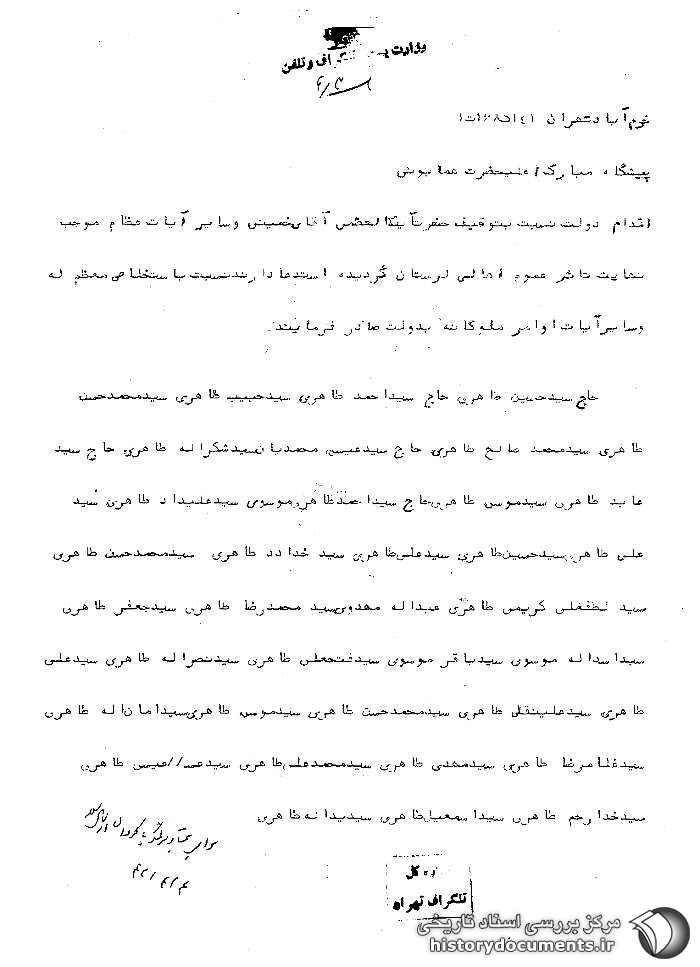 وزارت پست تلگراف و تلفن
خرم آباد تهران
پیشگاه مبارک اعلیحضرت همایونی
اقدام دولت نسبت بتوقیف حضرت آیةاله العظمی آقای خمینی و سایر آیات عظام موجب
نهایت تاثر عموم اهالی لرستان گردیده استدعا دارند نسبت باستخلاص معظم له
و سایر آیات اوامر ملوکانه بدولت صادر فرمایند.
حاج سیدحسین طاهری حاج سیداحمد طاهری سیدحبیب طاهری سیدمحمدحسن
طاهری سیدمحمد صالح طاهری حاج سیدعیسی محمدیان سیدشکراله طاهری حاج سید
عابد طاهری سیدموسی طاهری حاج سید طاهری موسوی سیدعلیداد طاهری سید
علی طاهری سیدحسین طاهری سیدعلی طاهری سید خداداد طاهری سیدمحمدحسن طاهری
سید لطفعلی کریمی طاهری عبداله مهدوی سید محمدرضا طاهری سیدجعفر طاهری
سیداسداله موسوی سیدباقر موسوی سیدفتحعلی طاهری سیدنصراله طاهری سیدعلی
طاهری سیدعلینقلی طاهری سیدمحمدحسن طاهری سیدموسی طاهری سیدامان اله طاهری
سیدغلامرضا طاهری سیدمهدی طاهری سیدمحمدعلی طاهری سید//عیسی طاهری
سیدخدارحم طاهری سیداسمعیل طاهری سیدیداله طاهری
کل
تلگراف تهران
مرکز بررسی اسناد تاریخی
historydocuments.ir